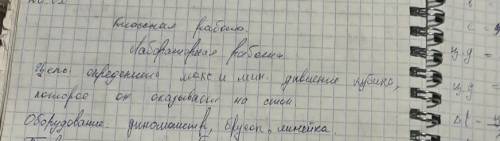 Классная работа
Лабораторная работа
Цель: определение макс и мин. давление кубика,
которое он оказывает на стол
Оборудование: динамометр, брусок, линейка
ц.д =
ц.д =